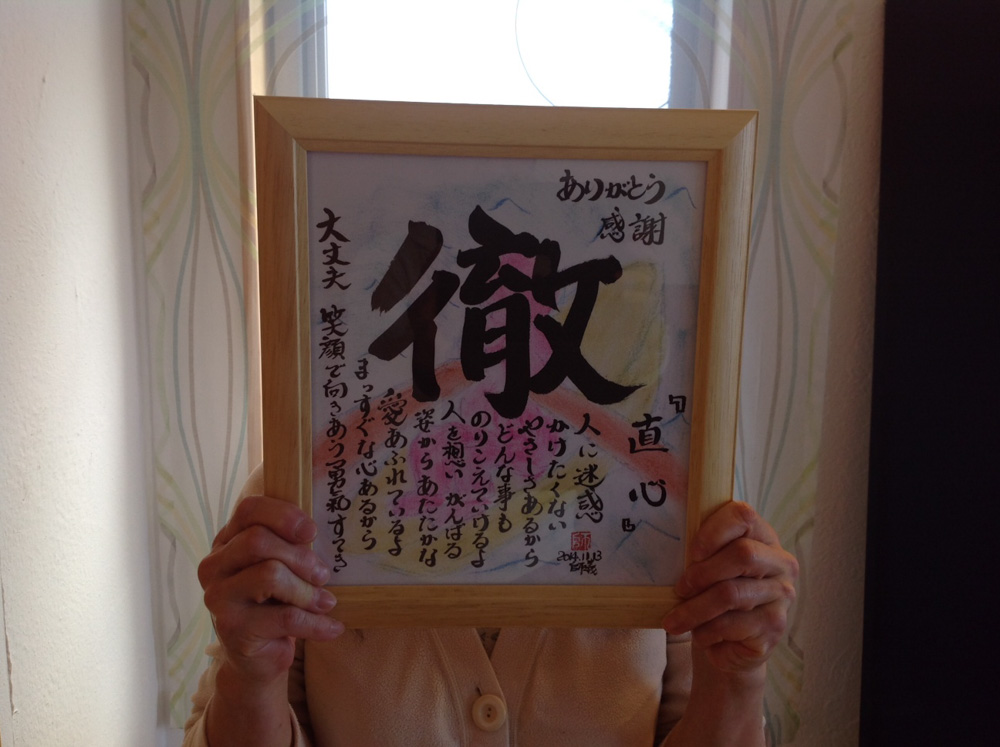 ありがとう
感謝
徹
『直心』
人に迷惑
かけたくない
やさしさあるから
どんな事も
のりこえていけるよ
人を想い がんばる
姿から あたたかな
愛あふれているよ
まっすぐな心あるから
大丈夫 笑顔で向きあう勇気すてき
2014.11.13